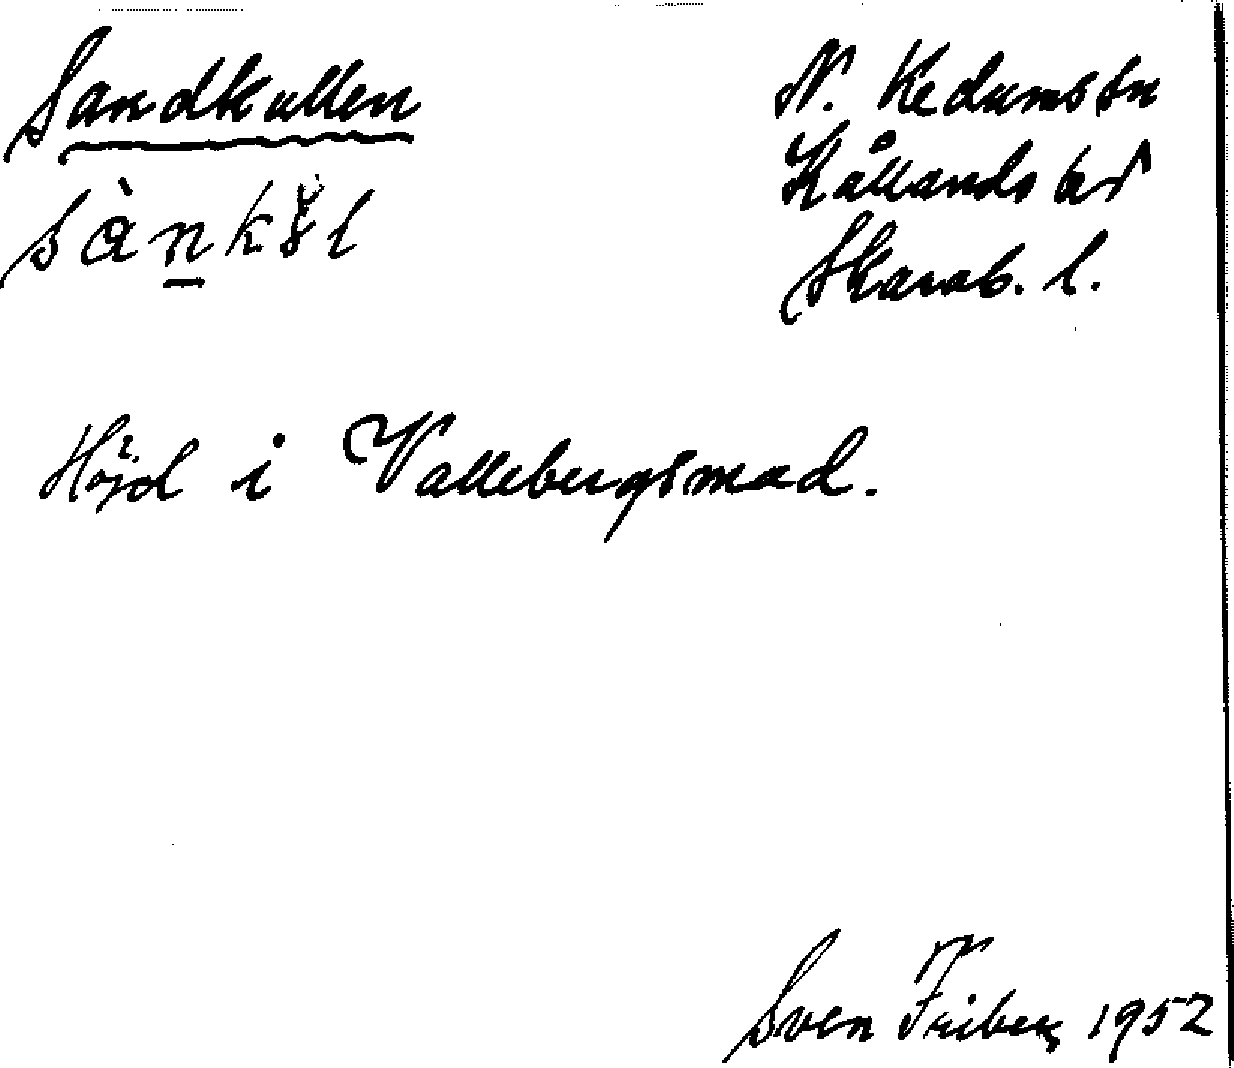 Sandkullen
N. Kedumssn
Kållands hd
Skarab. l.
Höjd i Vallebergsmad.
Sven Friberg 1952